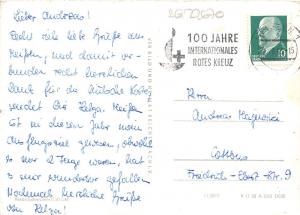 Lieber Andreas!
Recht viele liebe Grüße aus
Meißen, und damit ver-
bunden recht herzlichen
Dank für die hübsche Karte
sendet Dir Helga. Meißen
ist in diesem Jahr unser
Ausflugsziel gewesen, obwohl
es nur 2 Tage waren, hat
es mir wunderbar gefallen
Nochmals herzliche Grüße
von Helga!
100 JAHRE
INTERNATIONALES
ROTES KREUZ
10
Herrn
Andreas
Cottbus
Friedrich-Ebert-Str. 9